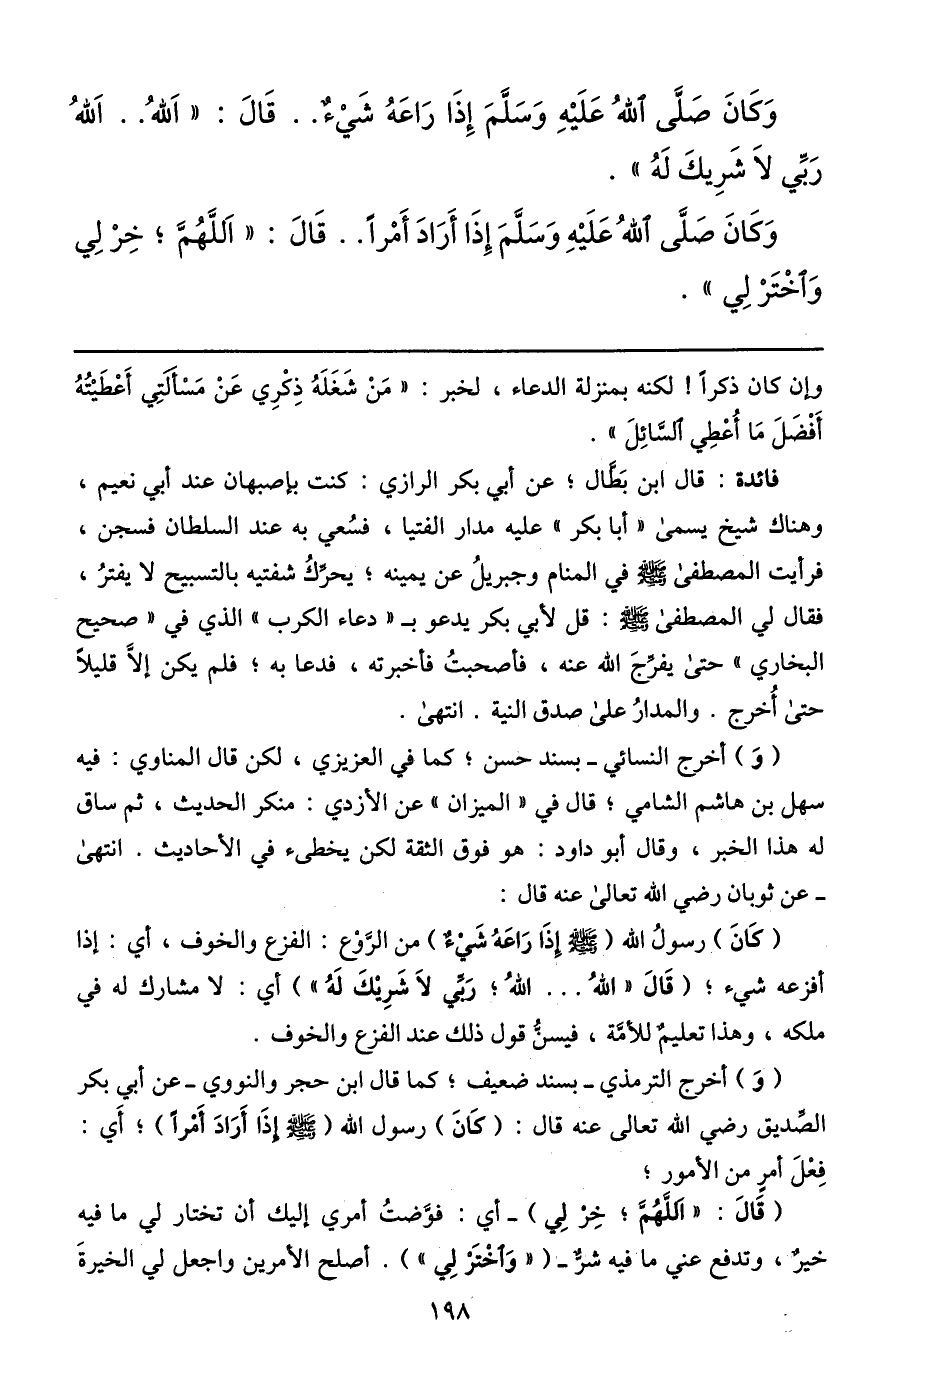 وَكَانَ صَلَّى ٱللهُ عَلَيْهِ وَسَلَّمَ إِذَا رَاعَهُ شَيْءٌ. . قَالَ : « اَللهُ. . اَللهُ
رَبِّي لاَ شَرِيكَ لَهُ » .
وَكَانَ صَلَّى ٱللهُ عَلَيْهِ وَسَلَّمَ إِذَا أَرَادَ أَمْراً. . قَالَ : « اَللَّهُمَّ ؛ خِرْ لِي
وَٱخْتَرْ لِي » .
وإن كان ذكراً ! لكنه بمنزلة الدعاء ، لخبر : « مَنْ شَغَلَهُ ذِكْرِي عَنْ مَسْأَلَتِي أَعْطَيْتُهُ
أَفْضَلَ مَا أُعْطِي ٱلسَّائِلَ » .
فائدة : قال ابن بَطَّال ؛ عن أبي بكر الرازي : كنت بإصبهان عند أبي نعيم ،
وهناك شيخ يسمىٰ « أبا بكر » عليه مدار الفتيا ، فسُعي به عند السلطان فسجن ،
فرأيت المصطفىٰ ﷺ في المنام وجبريلُ عن يمينه ؛ يحرِّكُ شفتيه بالتسبيح لا يفترُ ،
فقال لي المصطفىٰ ﷺ : قل لأبي بكر يدعو بـ « دعاء الكرب » الذي في « صحيح
البخاري » حتىٰ يفرِّجَ الله عنه ، فأصبحتُ فأخبرته ، فدعا به ؛ فلم يكن إلاَّ قليلاً
حتىٰ أُخرج . والمدارُ علىٰ صدق النية . انتهىٰ .
( وَ ) أخرج النسائي ـ بسند حسن ؛ كما في العزيزي ، لكن قال المناوي : فيه
سهل بن هاشم الشامي ؛ قال في « الميزان » عن الأزدي : منكر الحديث ، ثم ساق
له هذا الخبر ، وقال أبو داود : هو فوق الثقة لكن يخطىء في الأحاديث . انتهىٰ
ـ عن ثوبان رضي الله تعالىٰ عنه قال :
( كَانَ ) رسولُ الله ( ﷺ إِذَا رَاعَهُ شَيْءٌ ) من الرَّوْع : الفزع والخوف ، أي : إذا
أفزعه شيء ؛ ( قَالَ « اللهُ . . . اللهُ ؛ رَبِّي لاَ شَرِيْكَ لَهُ » ) أي : لا مشارك له في
ملكه ، وهذا تعليمٌ للأمَّة ، فيسنُّ قول ذلك عند الفزع والخوف .
( وَ ) أخرج الترمذي ـ بسند ضعيف ؛ كما قال ابن حجر والنووي ـ عن أبي بكر
الصِّديق رضي الله تعالى عنه قال : ( كَانَ ) رسول الله ( ﷺ إِذَا أَرَادَ أَمْراً ) ؛ أَي :
فِعْلَ أمرٍ من الأمور ؛
( قَالَ : « اَللَّهُمَّ ؛ خِرْ لِي ) ـ أي : فوَّضتُ أمري إليك أن تختار لي ما فيه
خيرٌ ، وتدفع عني ما فيه شرٌّ ـ ( « وَٱخْتَرْ لِي » ) . أصلح الأمرين واجعل لي الخيرةَ
١٩٨